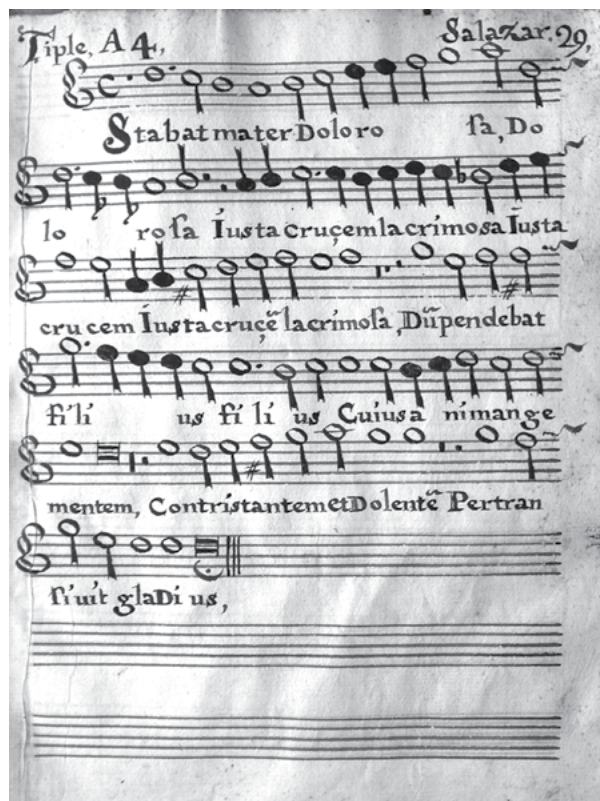 Tiple, A 4, Salazar. 29,
Stabat mater Doloro sa, Do
lo rosa Iusta cruçem lacrimosa Iusta
cru cem Iusta cruçẽ lacrimosa, Dũpendebat
fili us fi li us Cuius a nimange
mentem, Contristantem et Dolentẽ Pertran
siuit glaDi us,